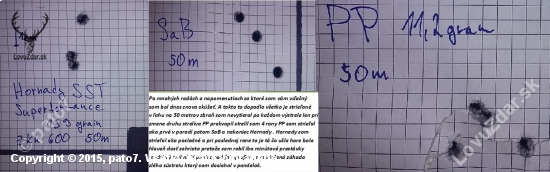 Lovuzdar.sk
Hornady SST
Superformance
grain
3xh 600 50m
Copyright © 2015, pato7.
SaB
50m
Po mnohých radách a napomenutiach za ktoré som vám vďačný
som bol dnes znova skúšať. A takto to dopadlo všetko je strieľané
v ľahu na 50 metrov zbraň som nevytieral po každom výstrele len pri
zmene druhu streliva PP prekvapil strelil som 4 rany PP som strieľal
ako prvé v poradí potom SaB a nakoniec Hornady . Hornady som
strieľal ako posledné a pri poslednej rane to je tá čo ušla hore bola
hlaveň dosť zohriata pretože som robil iba minútové prestávky
záhada
môjho zástrelu ktorý som dosiahol v pondelok.
PP 11,2 gram
50m
Lovuzdar.sk